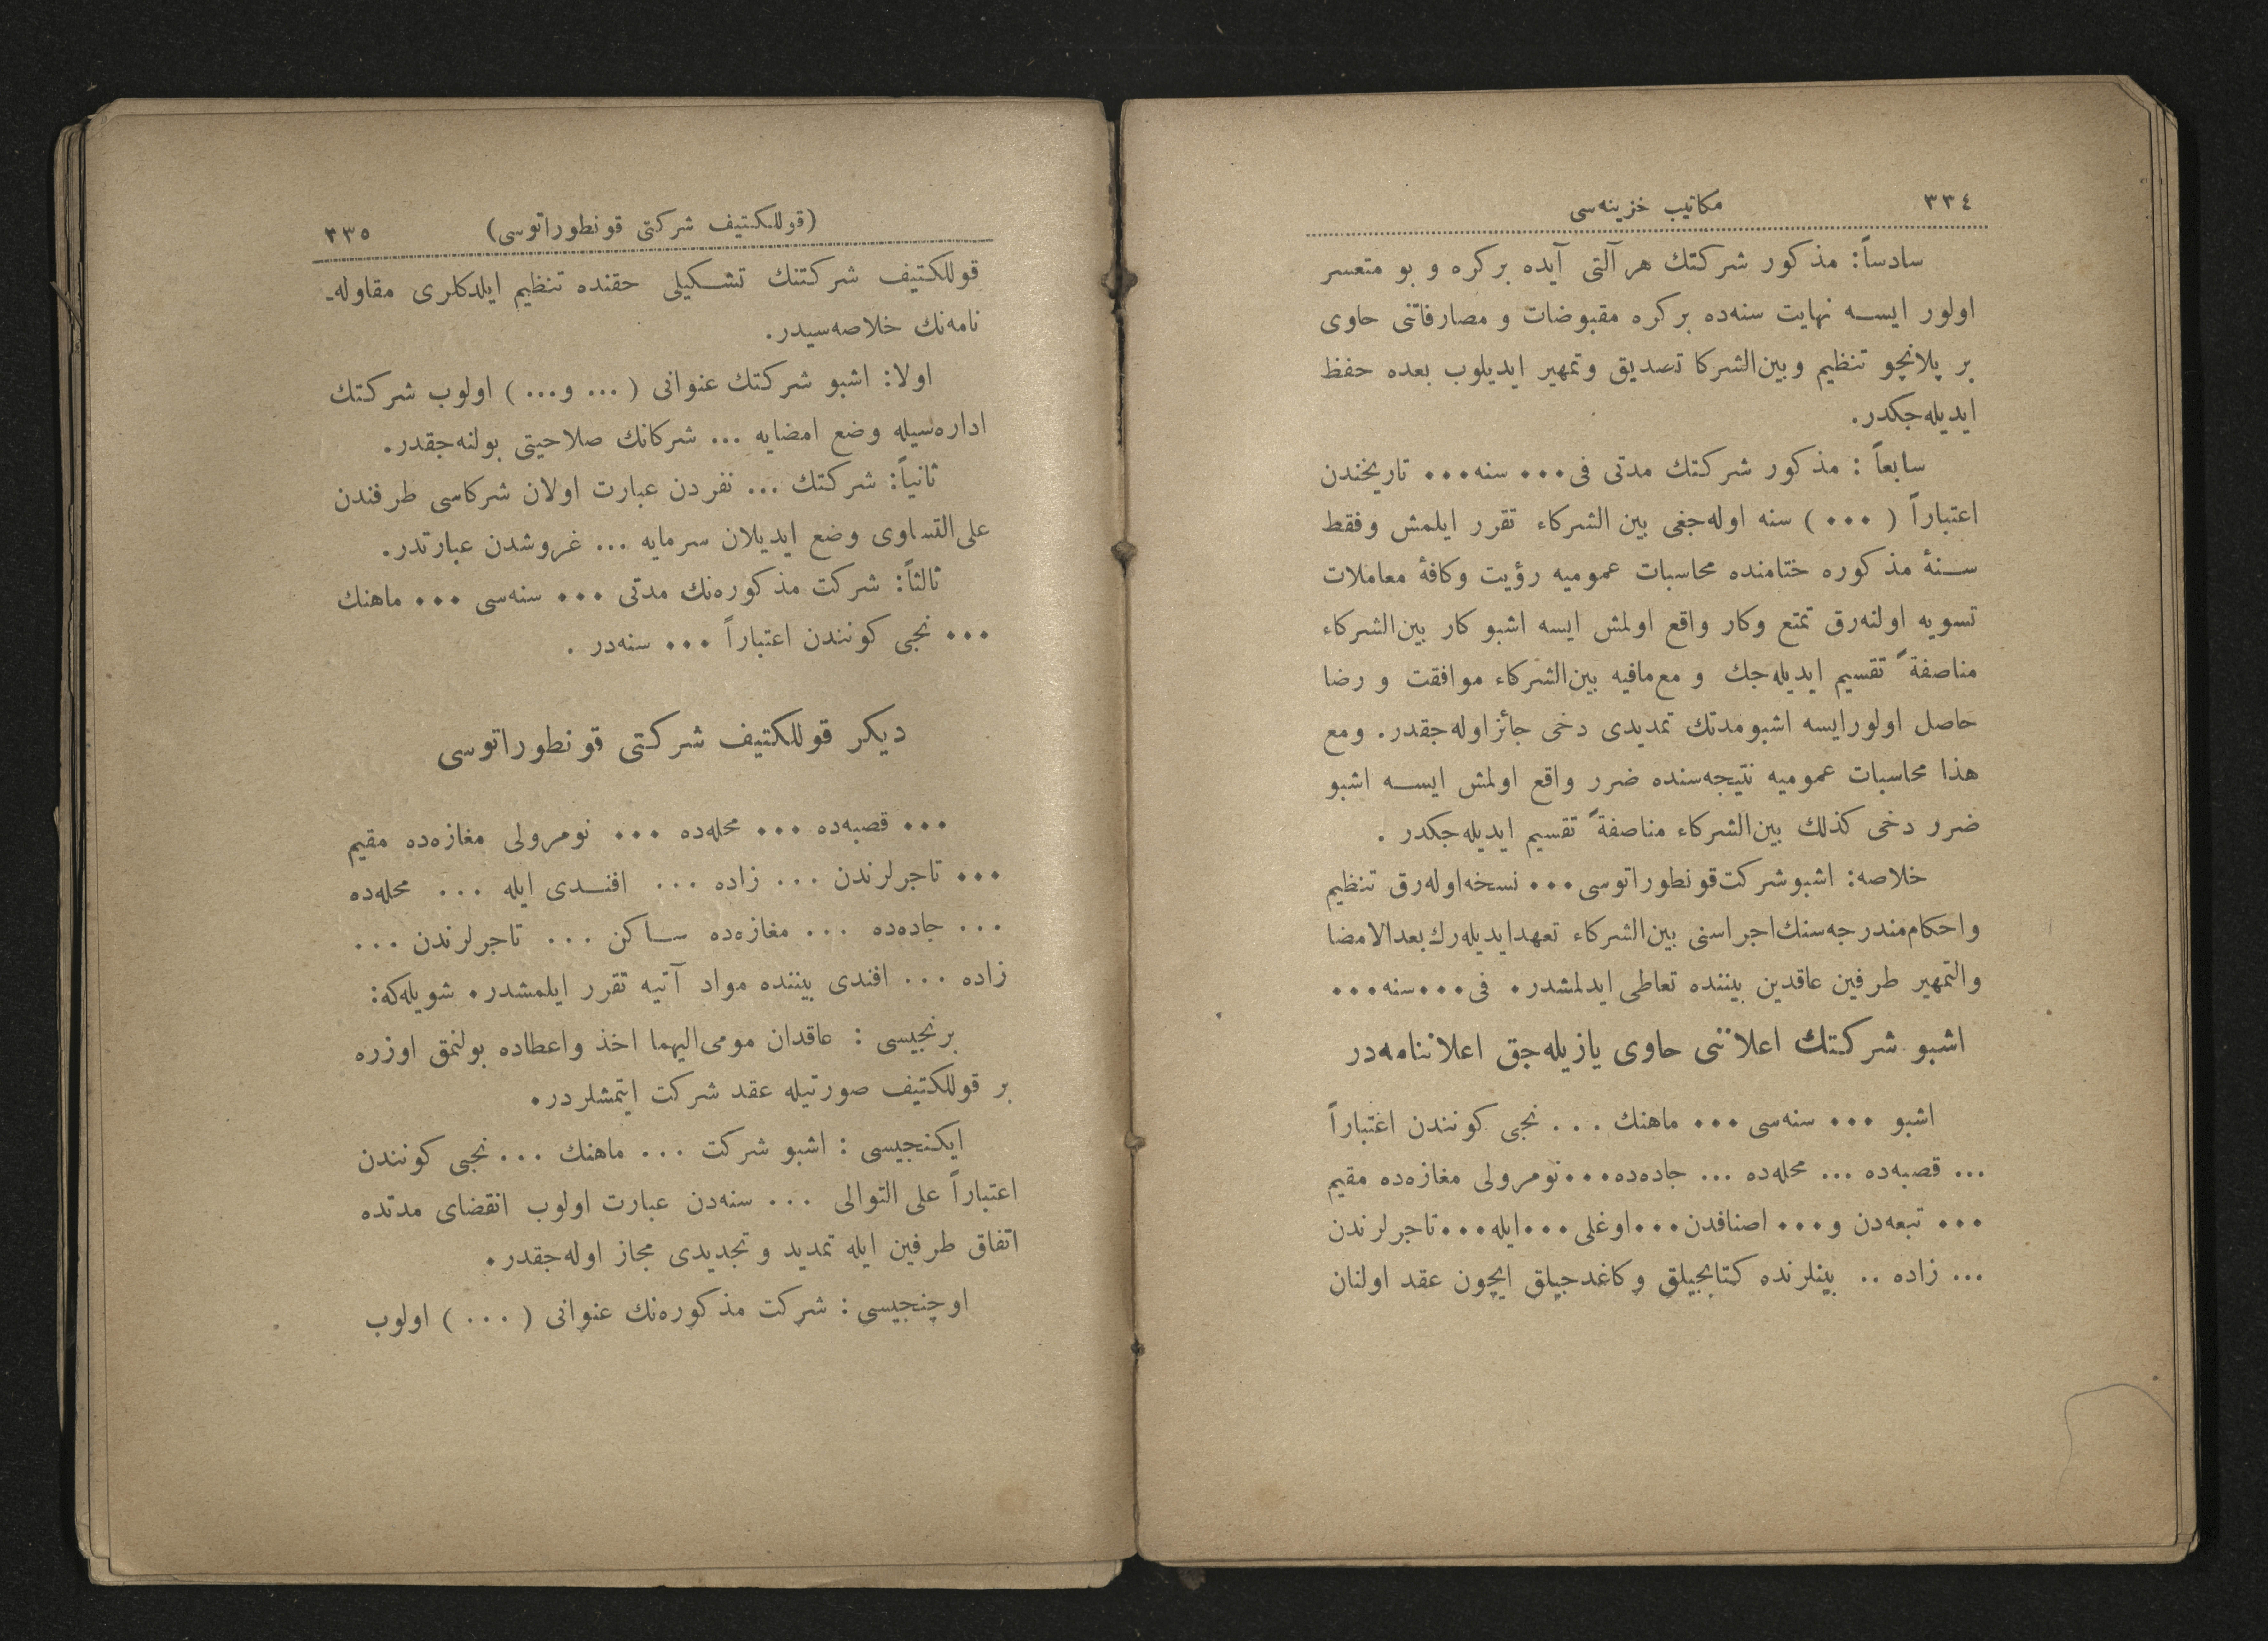 ٣٣٤ مكاتيب خزينه‌سى
سادساً: مذكور شركتك هر آلتى آيده بركره و بو متعسر
اولور ايسه نهايت سنه‌ده بركره مقبوضات و مصارفاتنى حاوى
بر پلانچو تنظيم وبين‌الشركا تصديق وتمهير ايديلوب بعده حفظ
ايديله‌جكدر.
سابعاً : مذكور شركتك مدتى فى... سنه... تاريخندن
اعتباراً (...) سنه اوله‌جغى بين الشركاء تقرر ايلمش وفقط
سنۀ مذكوره ختامنده محاسبات عموميه رؤيت وكافۀ معاملات
تسويه اولنه‌رق تمتع وكار واقع اولمش ايسه اشبو كار بين‌الشركاء
مناصفةً تقسيم ايديله‌جك و مع‌مافيه بين‌الشركاء موافقت و رضا
حاصل اولورايسه اشبومدتك تمديدى دخى جائزاوله‌جقدر. ومع
هذا محاسبات عموميه نتيجه‌سنده ضرر واقع اولمش ايسه اشبو
ضرر دخى كذلك بين‌الشركاء مناصفةً تقسيم ايديله‌جكدر .
خلاصه: اشبوشركت‌قونطوراتوسى... نسخه‌اوله‌رق تنظيم
واحكام‌مندرجه‌سنك‌اجراسنى بين‌الشركاء تعهدايديله‌رك‌بعدالامضا
والتمهير طرفين عاقدين بيننده تعاطى ايدلمشدر. فى...سنه...
اشبو شركتك اعلاننى حاوى يازيله‌جق اعلاننامه‌در
اشبو ... سنه‌سى ... ماهنك ... نجى كونندن اعتباراً
... قصبه‌ده ... محله‌ده ... جاده‌ده...نومرولى مغازه‌ده مقيم
... تبعه‌دن و... اصنافدن...اوغلى...ايله...تاجرلرندن
... زاده .. بينلرنده كتابجيلق وكاغدجيلق ايچون عقد اولنان
(قوللكتيف شركتى قونطوراتوسى) ٣٣٥
قوللكتيف شركتنك تشكيلى حقنده تنظيم ايلدكلرى مقاوله‌-
نامه‌نك خلاصه‌سيدر.
اولا: اشبو شركتك عنوانى (... و...) اولوب شركتك
اداره‌سيله وضع امضايه ... شركانك صلاحيتى بولنه‌جقدر.
ثانياً: شركتك ... نفردن عبارت اولان شركاسى طرفندن
على‌التساوى وضع ايديلان سرمايه ... غروشدن عبارتدر.
ثالثاً: شركت مذكوره‌نك مدتى ... سنه‌سى ... ماهنك
... نجى كونندن اعتباراً ... سنه‌در .
ديكر قوللكتيف شركتى قونطوراتوسى
... قصبه‌ده ... محله‌ده ... نومرولى مغازه‌ده مقيم
... تاجرلرندن ... زاده ... افندى ايله ... محله‌ده
... جاده‌ده ... مغازه‌ده ساكن ... تاجرلرندن ...
زاده ... افندى بيننده مواد آتيه تقرر ايلمشدر. شويله‌كه:
برنجيسى : عاقدان مومى‌اليهما اخذ واعطاده بولنمق اوزره
بر قوللكتيف صورتيله عقد شركت ايتمشلردر.
ايكنجيسى : اشبو شركت ... ماهنك ... نجى كونندن
اعتباراً على‌التوالى ... سنه‌دن عبارت اولوب انقضاى مدتده
اتفاق طرفين ايله تمديد و تجديدى مجاز اوله‌جقدر.
اوچنجيسى : شركت مذكوره‌نك عنوانى (...) اولوب